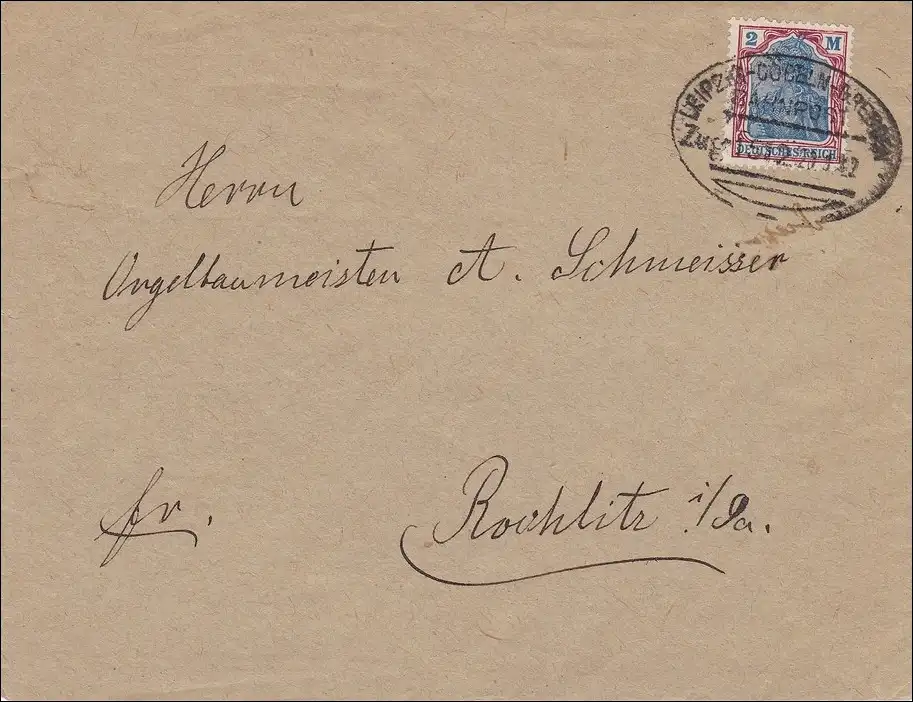 2 M
LEIPZIG-DÖBELN-DRESDEN
BAHNPOST
DEUTSCHES REICH
Herrn
Orgelbaumeister A. Schmeisser
fr.
Rochlitz i/Sa.